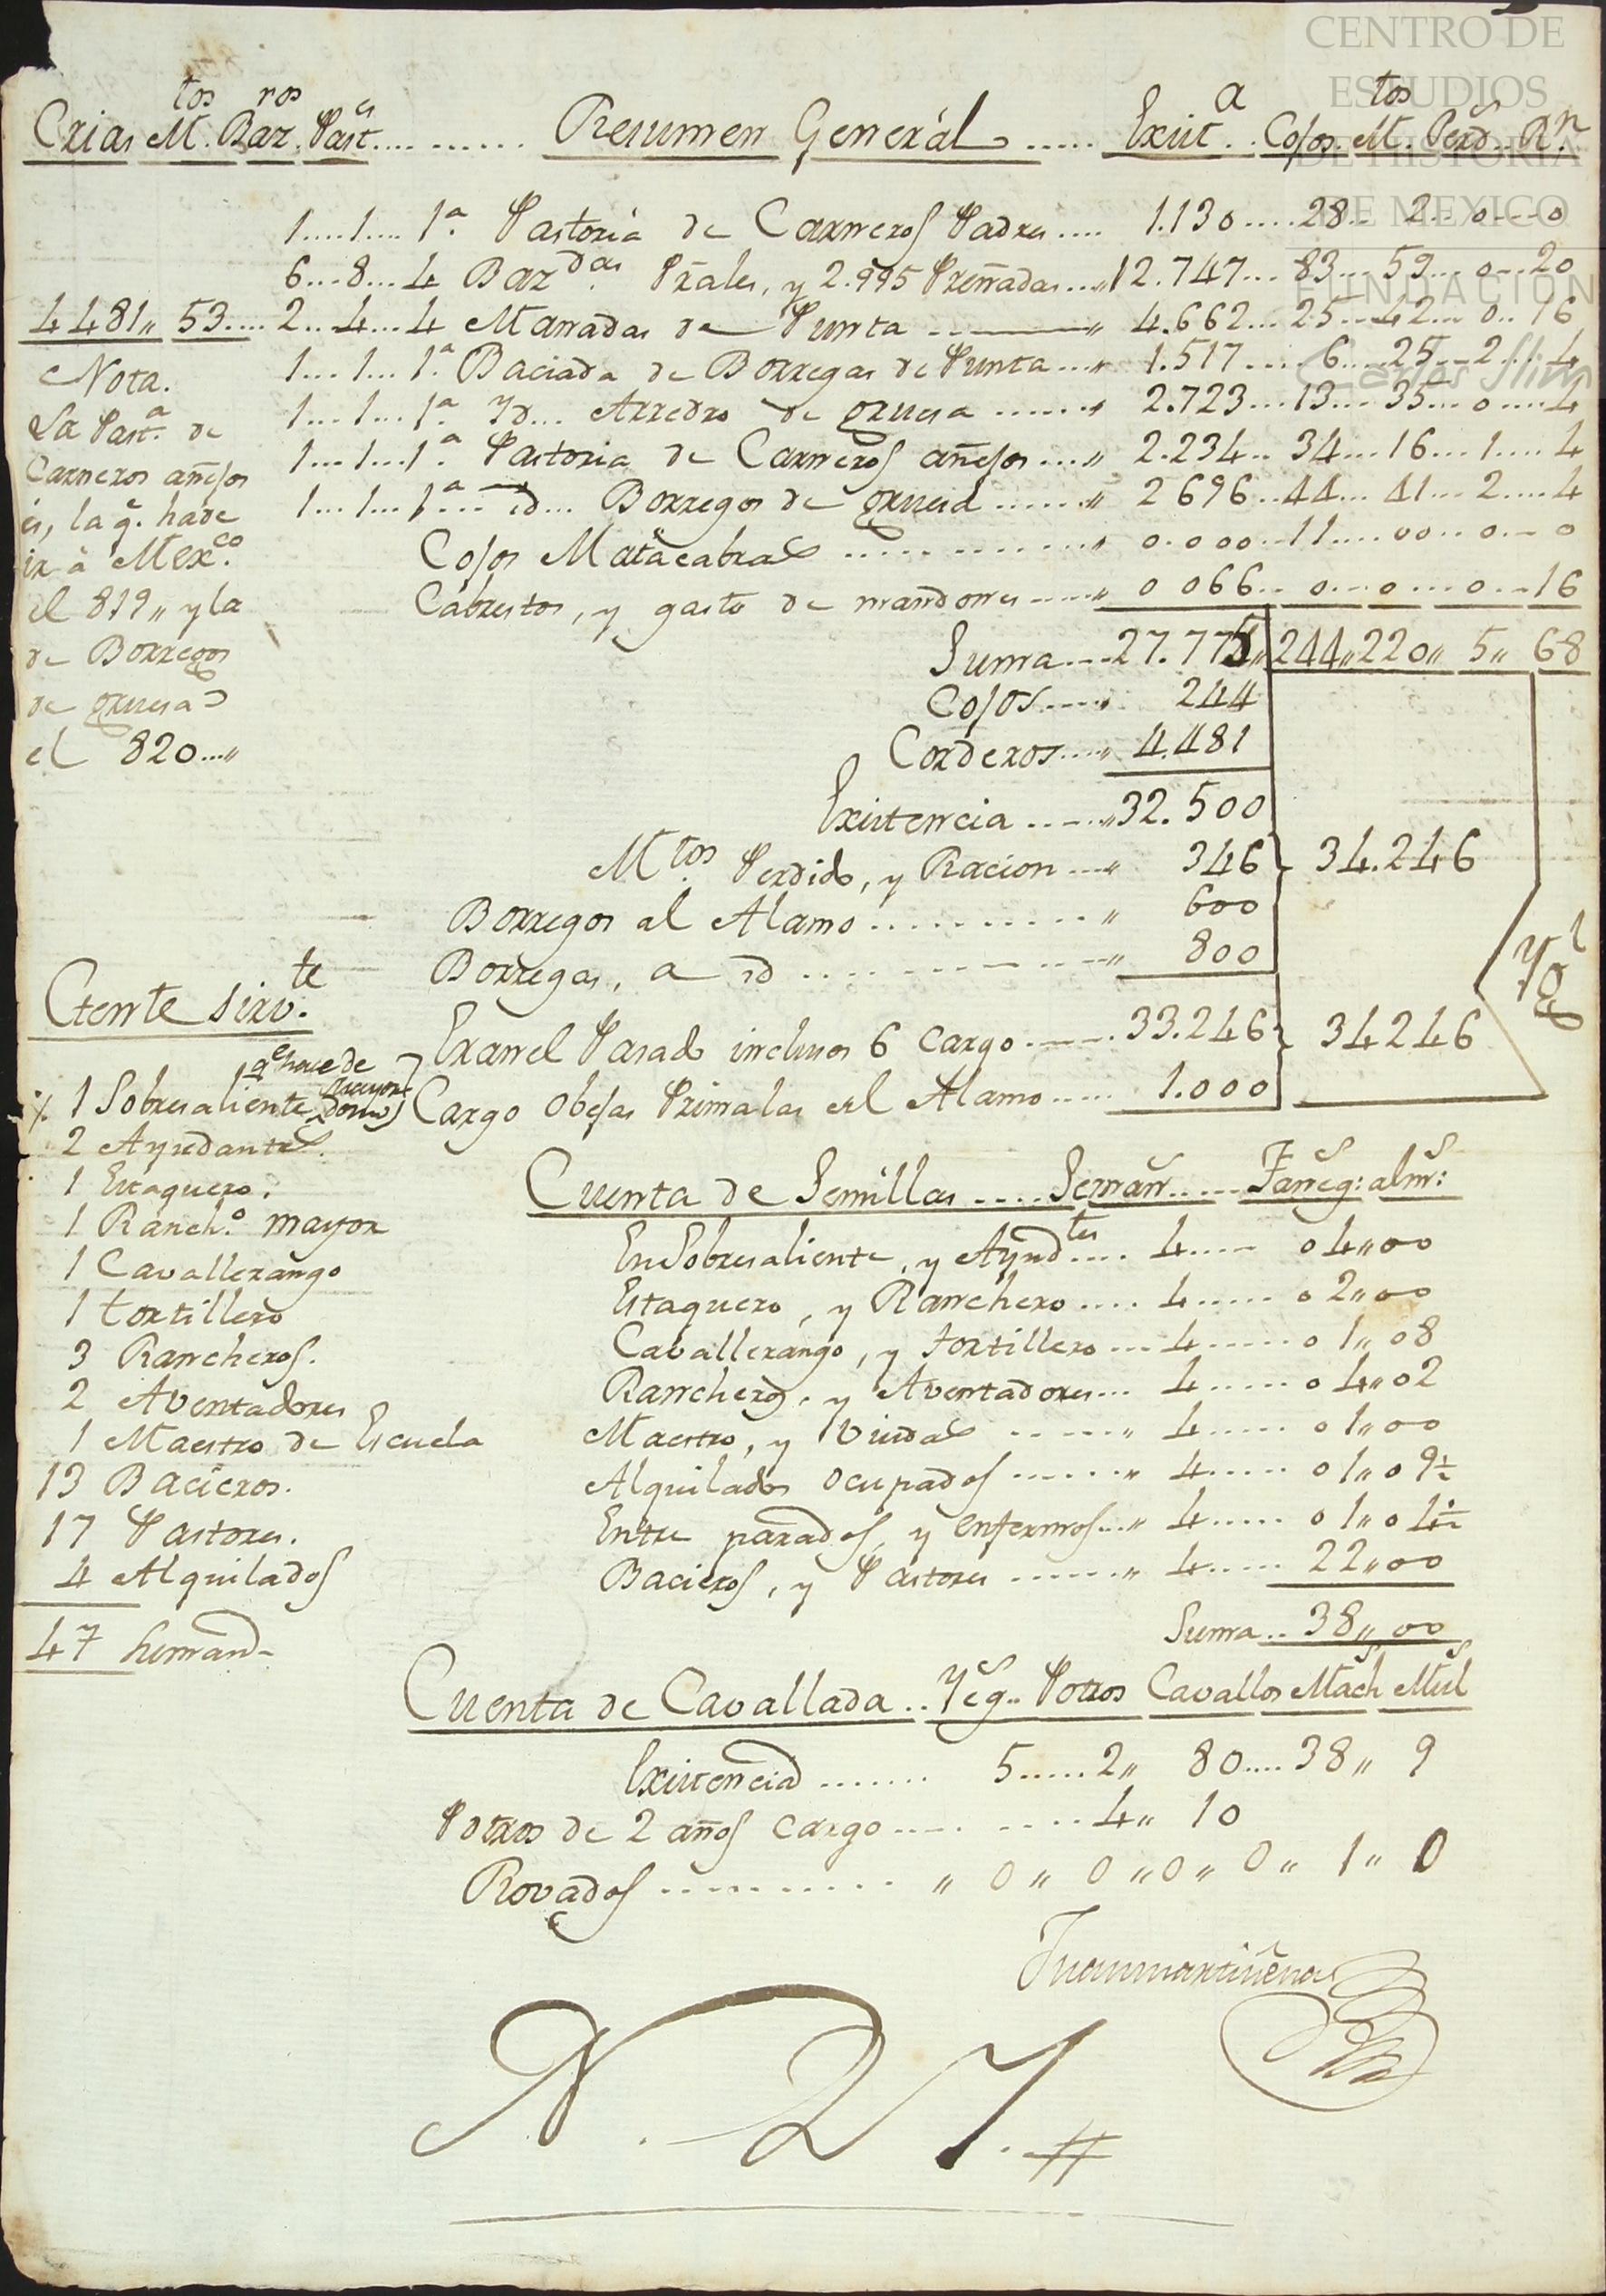 CENTRO DE
ESTUDIOS
DE HISTORIA
DE MEXICO
FUNDACION
Carlos Slim
Crias M.tos Baz.ros Past.es .... Resumen General ..... Exist.a Cojos M.tos Perd.s R.n
1.....1.... 1.a Pastoria de Carneros Padres .... 1.130.....28... 2... 0....0
6...8...4 Baz.das P̃rales, y 2.995 Preñadas...„12.747....83....59...0...20
4481„ 53.... 2...4...4 Manadas de Punta ————„ 4.662...25...42...0..16
1....1.... 1.a Baciada de Borregas de Punta...„ 1.517.....6....25...2....4
1....1.... 1.a Yd... Arredro de gruesa ......„ 2.723...13...35...0....4
1....1....1.a Pastoria de Carneros añejos....„ 2.234...34....16....1.....4
1....1....1.a... id... Borregos de gruesa ......„ 2696...44...41....2.....4
Cojos Matacabras ..............„ 0.000...11....00...0...0
Cabrestos, y gasto de mandones.....„ 0066...0....0....0...16
Nota.
La Past.a de
Carneros añejos
es, la q.e hade
ir à Mex.co
el 819„ y la
de Borregos
de gruesa
el 820....„
Suma....27.775„ 244„ 220„ 5„ 68
Cojos.....„ 244
Corderos....„ 4.481
Existencia .....„32.500
M.tos Perdido, y Racion....„ 346 } 34.246
Borregos al Alamo ..........„ 600
Borregas, a id ............„ 800
Yg.l
Exanel Pasado inclusos 6 cargo......33.246 } 34246
Cargo Obejas Primalas el Alamo ..... 1.000
Gente sirv.te
1 Sobresaliente q.e hace de mayordomo
2 Ayudantes.
1 Estaquero.
1 Ranch.o mayor
1 Cavallerango
1 tortillero
3 Rancheros.
2 Aventadores
1 Maestro de Escuela
13 Bacieros.
17 Pastores.
4 Alquilados
47 Suman-
Cuenta de Semillas .... Seman.s .... Faneg.s: alm.s:
En Sobresaliente, y Ayud.tes .... 4..... 04„00
Estaquero, y Ranchero .... 4...... 02„00
Cavallerango, y tortillero ... 4...... 01„08
Rancheros, y Aventadores... 4...... 04„02
Maestro, y Viudas ......„ 4...... 01„00
Alquilados ocupados ......„ 4...... 01„09½
Entre parados, y enfermos...„ 4...... 01„04½
Bacieros, y Pastores .......„ 4...... 22„00
Suma.. 38„00
Cuenta de Cavallada .. Yeg.s Potros Cavallos Mach.s Mul.s
Existencia ....... 5......2„ 80....38„ 9
Potros de 2 años cargo .... ....4„ 10
Rovados ..........„ 0„ 0„0„ 0„ 1„ 0
N. 27.